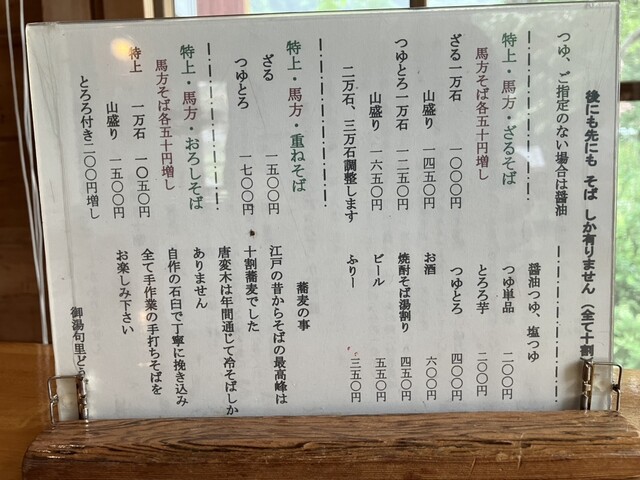 後にも先にも そば しか有りません（全て十割
つゆ、ご指定のない場合は醤油
醤油つゆ、塩つゆ
特上・馬方・ざるそば
馬方そば各五十円増し
ざる一万石 一〇〇〇円
山盛り 一四五〇円
つゆとろ一万石 一二五〇円
山盛り 一六五〇円
二万石、三万石調整します
つゆ単品 二〇〇円
とろろ芋 二〇〇円
つゆとろ 四〇〇円
お酒 六〇〇円
焼酎そば湯割り 四五〇円
ビール 五五〇円
ふりー 三五〇円
特上・馬方・重ねそば
ざる 一五〇〇円
つゆとろ 一七〇〇円
特上・馬方・おろしそば
馬方そば各五十円増し
特上 一万石 一〇五〇円
山盛り 一五〇〇円
とろろ付き二〇〇円増し
蕎麦の事
江戸の昔からそばの最高峰は
十割蕎麦でした
唐変木は年間通じて冷そばしか
ありません
自作の石臼で丁寧に挽き込み
全て手作業の手打ちそばを
お楽しみ下さい
御湯句里どう